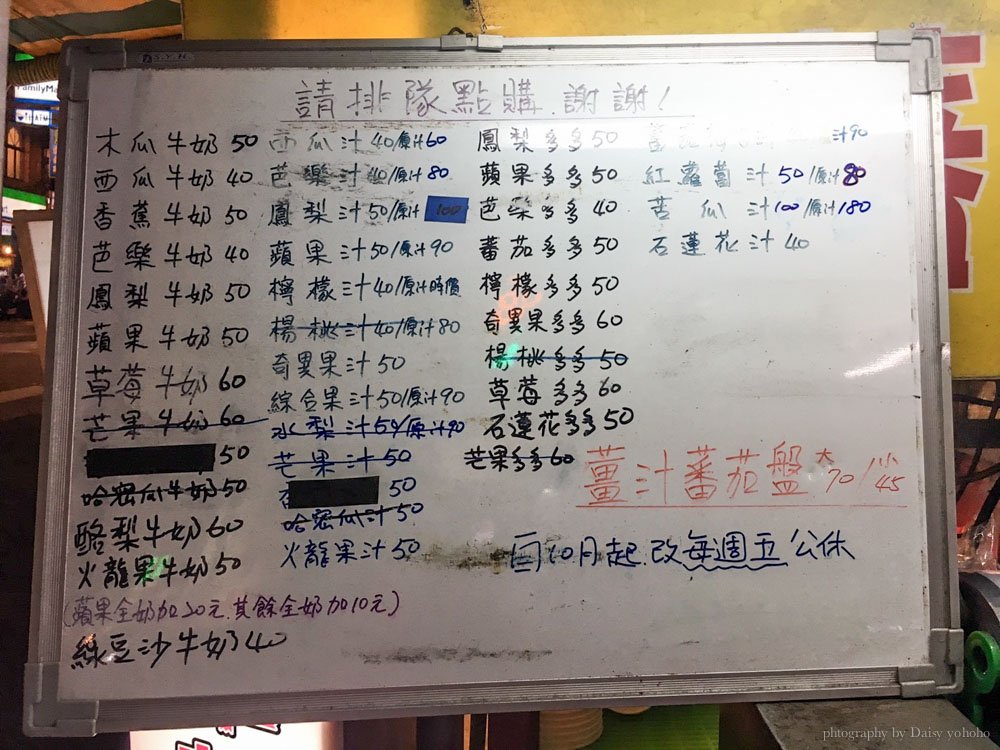 FamilyMa
請排隊點購.謝謝!
木瓜牛奶 50
西瓜牛奶 40
香蕉牛奶 50
芭樂牛奶 40
鳳梨牛奶 50
蘋果牛奶 50
草莓牛奶 60
芒果牛奶 60
50
哈密瓜牛奶 50
酪梨牛奶 60
火龍果牛奶 50
(蘋果全奶加20元.其餘全奶加10元)
綠豆沙牛奶 40
西瓜汁 40/原汁60
芭樂汁 40/原汁80
鳳梨汁 50/原汁 100
蘋果汁 50/原汁90
檸檬汁 40/原汁時價
楊桃汁 40/原汁80
奇異果汁 50
綜合果汁 50/原汁90
水梨汁 50/原汁90
芒果汁 50
50
哈密瓜汁 50
火龍果汁 50
鳳梨多多 50
蘋果多多 50
芭樂多多 40
蕃茄多多 50
檸檬多多 50
奇異果多多 60
楊桃多多 50
草莓多多 60
石蓮花多多 50
芒果多多 60
汁90
紅蘿蔔汁 50/原汁80
苦瓜汁100/原汁180
石蓮花汁 40
薑汁蕃茄盤 大70/小45
自10月起.改每週五公休
photography by Daisy yohoho